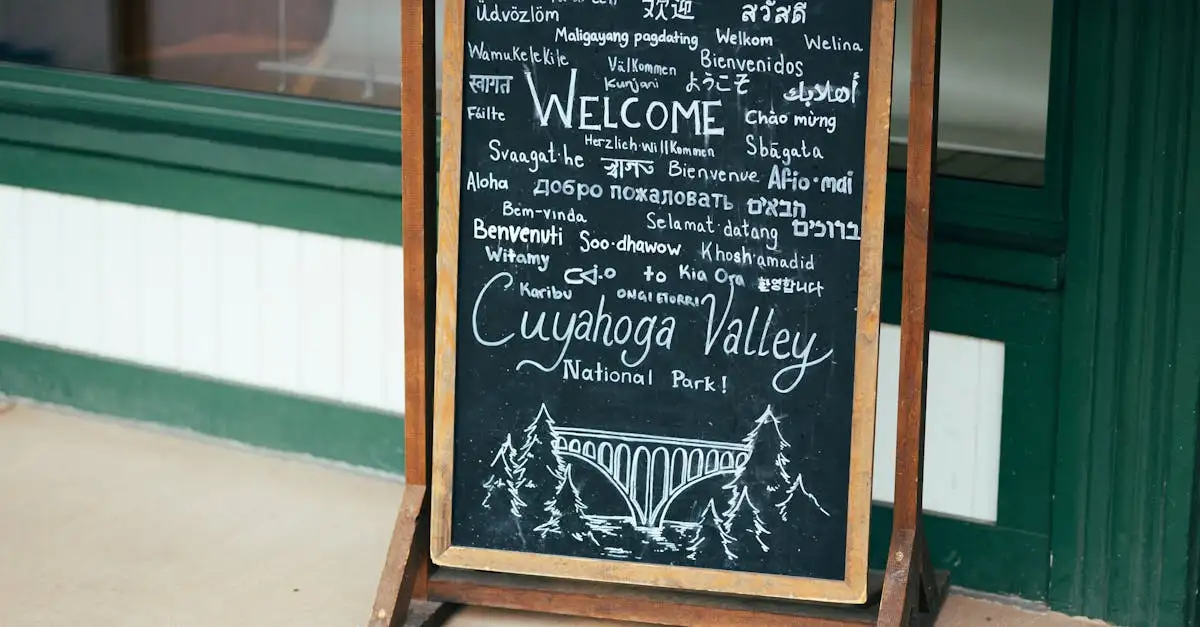 Üdvözlöm 欢迎 สวัสดี
Maligayang pagdating Welkom Welina
Wamukelekile Välkommen Bienvenidos
स्वागत Kunjani ようこそ أهلا بك
Fáilte WELCOME Chào mừng
Herzlich·willkommen Sbāgata
Svaagat·he Bienvenue Afio·mai
Aloha Добро пожаловать הבאים
Bem-vinda Selamat·datang ברוכים
Benvenuti Soo·dhawow Khosh·amadid
Witamy to Kia Ora 환영합니다
Karibu ONGI ETORRI
Cuyahoga Valley
~National Park!